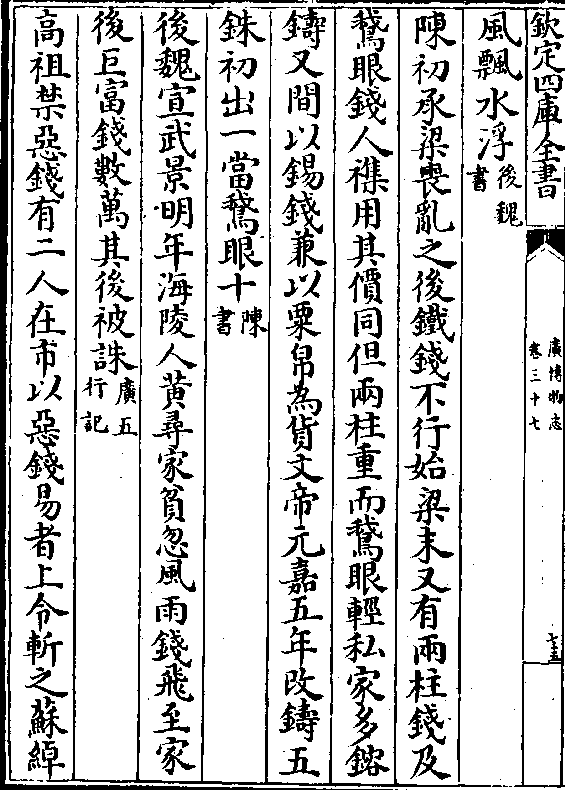 欽定四庫全書
廣博物志
卷三十七
風飄水浮後魏書
陳初承梁喪亂之後鐵錢不行始梁末又有兩柱錢及
鵞眼錢人襍用其價同但兩柱重而鵞眼輕私家多鎔
鑄又間以錫錢兼以粟帛為貨文帝元嘉五年改鑄五
銖初出一當鵞眼十陳書
後魏宣武景明年海陵人黄尋家貧忽風雨錢飛至家
後巨富錢數萬其後被誅廣五行記
高祖禁惡錢有二人在市以惡錢易者上令斬之蘇綽